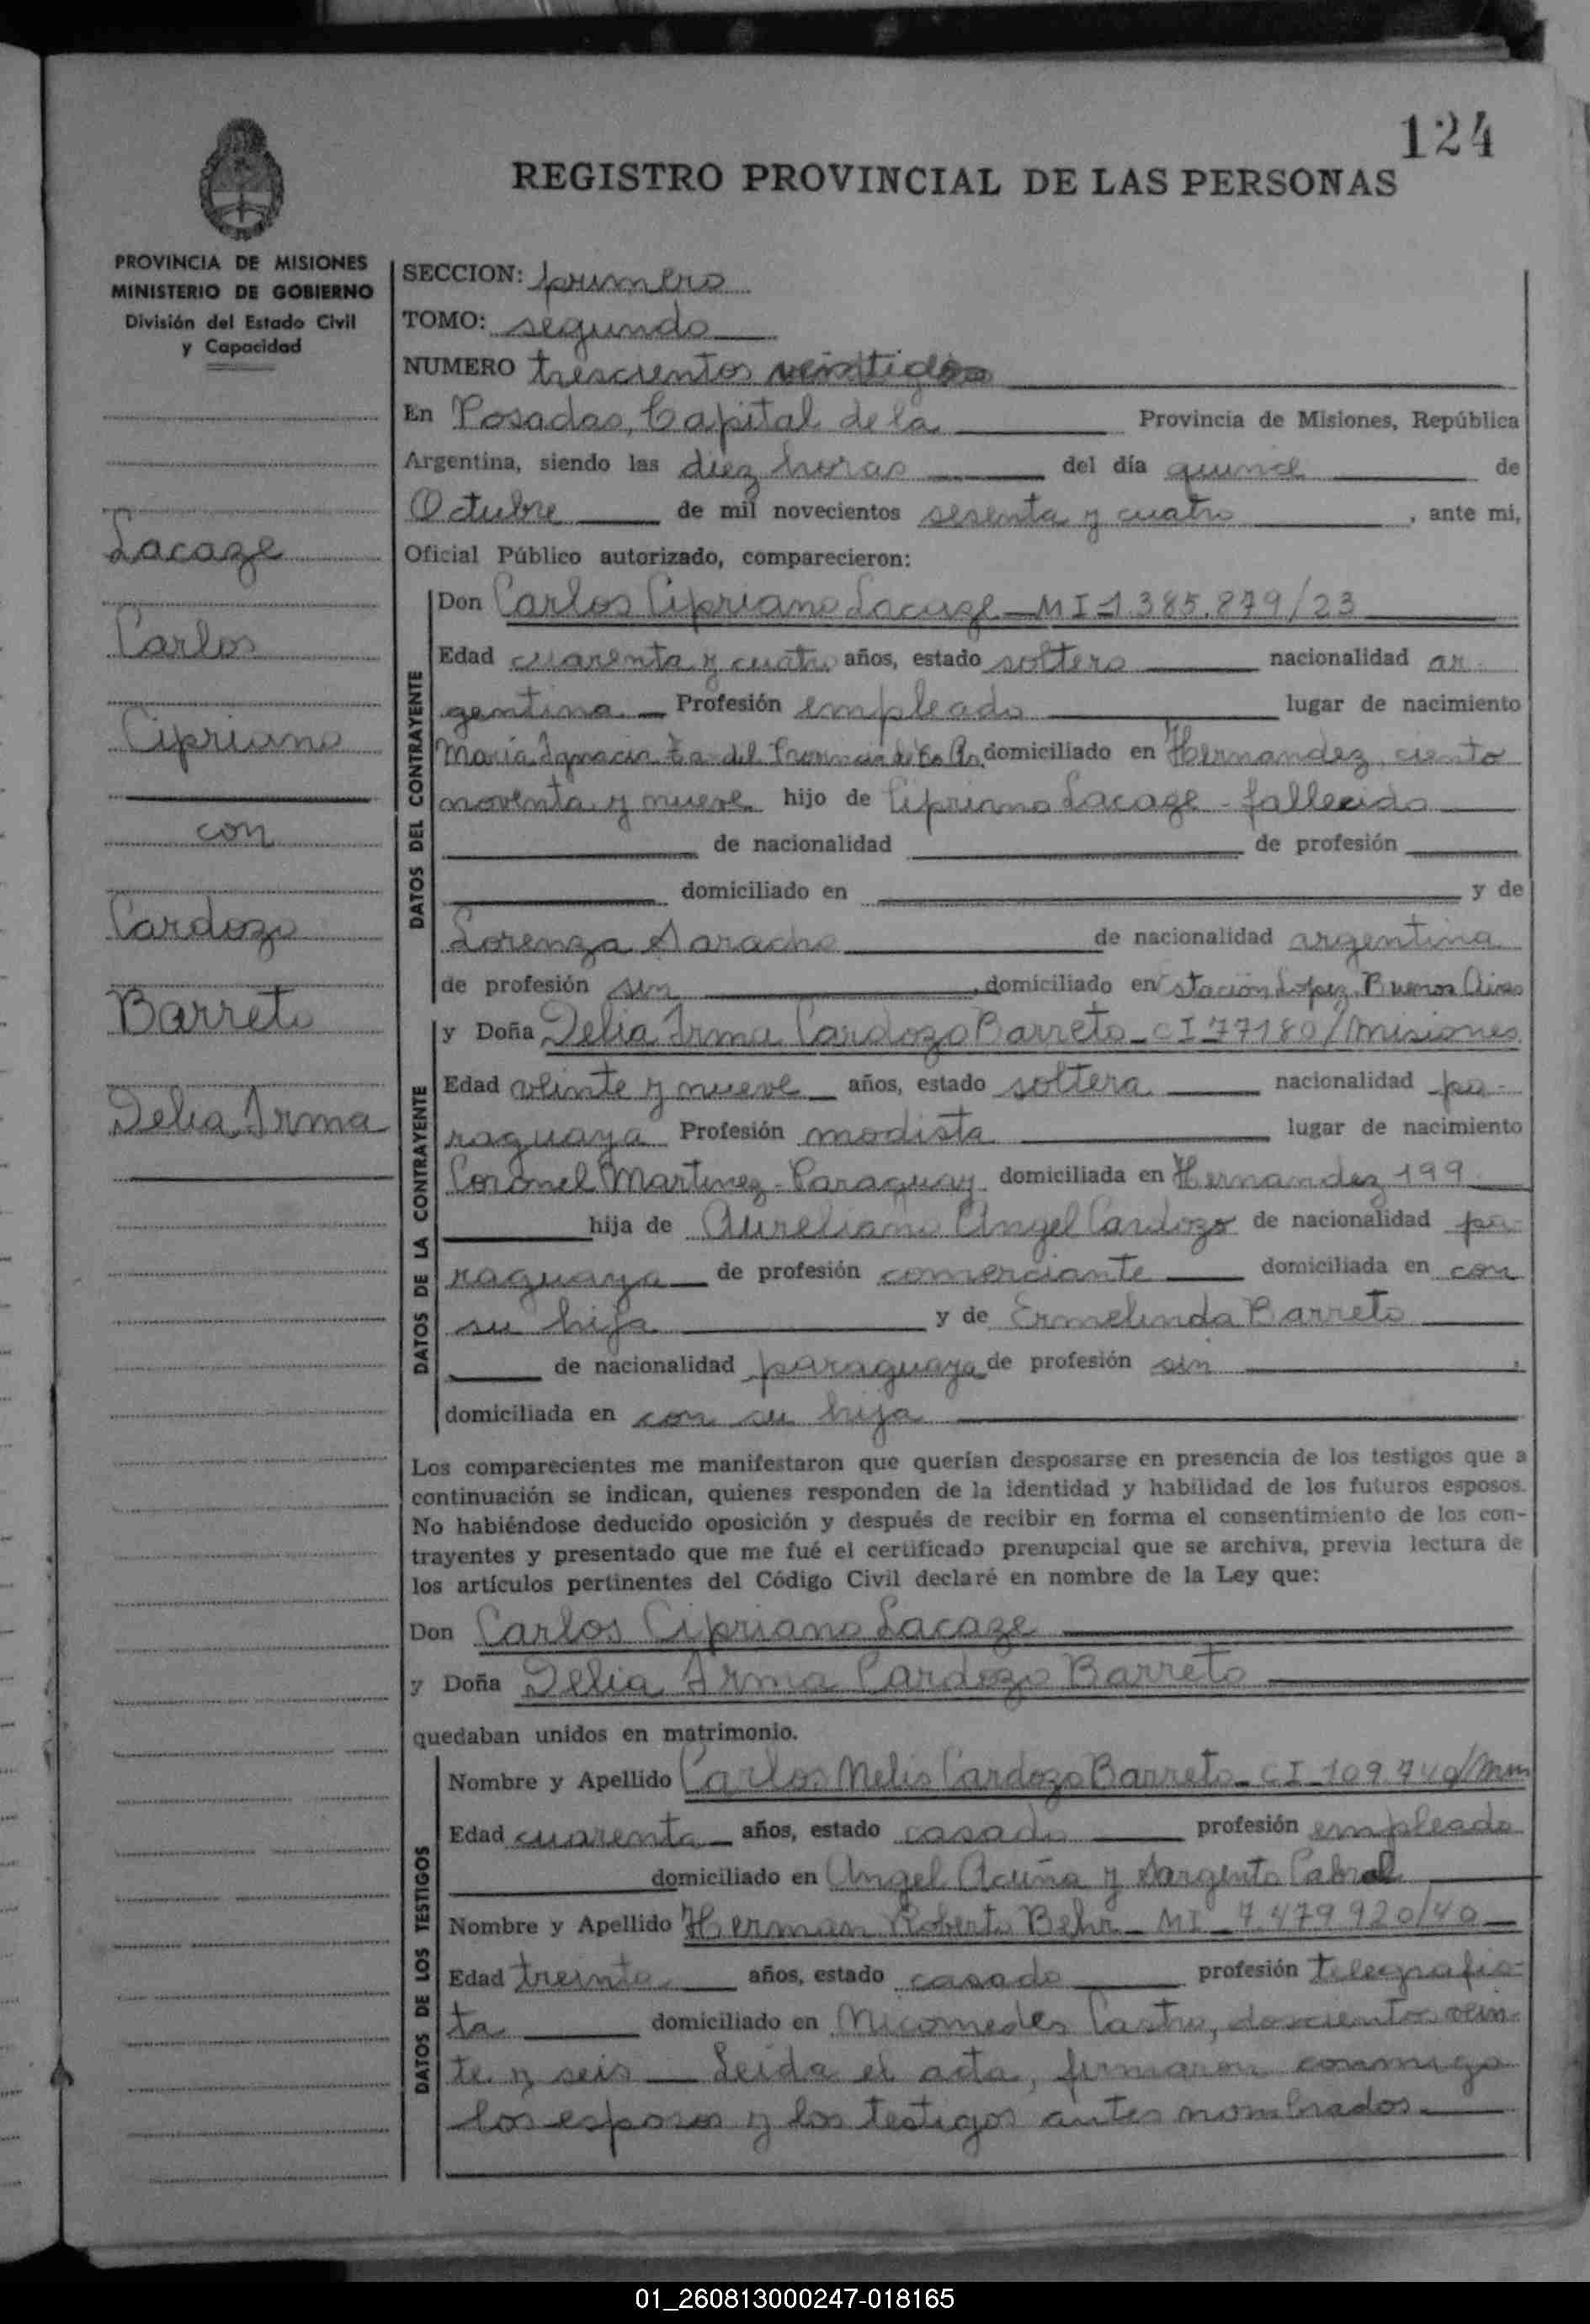 124
REGISTRO PROVINCIAL DE LAS PERSONAS
PROVINCIA DE MISIONES
MINISTERIO DE GOBIERNO
División del Estado Civil
y Capacidad
Lacaze
Carlos
Cipriano
con
Cardozo
Barreto
Delia Irma
SECCION: primero
TOMO: segundo
NUMERO trescientos veintidos
En Posadas, Capital de la Provincia de Misiones, República
Argentina, siendo las diez horas del día quince de
Octubre de mil novecientos sesenta y cuatro, ante mi,
Oficial Público autorizado, comparecieron:
DATOS DEL CONTRAYENTE
Don Carlos Cipriano Lacaze - MI 1.385.879/23
Edad cuarenta y cuatro años, estado soltero nacionalidad ar-
gentina Profesión empleado lugar de nacimiento
María Ignacia Provincia de Bs As domiciliado en Hernandez ciento
noventa y nueve hijo de Cipriano Lacaze - fallecido
de nacionalidad de profesión
domiciliado en y de
Lorenza Saracho de nacionalidad argentina
de profesión sin, domiciliado en Estación Lopez, Buenos Aires
DATOS DE LA CONTRAYENTE
y Doña Delia Irma Cardozo Barreto - CI 77180/Misiones
Edad veinte y nueve años, estado soltera nacionalidad pa-
raguaya Profesión modista lugar de nacimiento
Coronel Martinez - Paraguay domiciliada en Hernandez 199
hija de Aureliano Angel Cardozo de nacionalidad pa-
raguaya de profesión comerciante domiciliada en con
su hija y de Ermelinda Barreto
de nacionalidad paraguaya de profesión sin,
domiciliada en con su hija
Los comparecientes me manifestaron que querían desposarse en presencia de los testigos que a
continuación se indican, quienes responden de la identidad y habilidad de los futuros esposos.
No habiéndose deducido oposición y después de recibir en forma el consentimiento de los con-
trayentes y presentado que me fué el certificado prenupcial que se archiva, previa lectura de
los artículos pertinentes del Código Civil declaré en nombre de la Ley que:
Don Carlos Cipriano Lacaze
y Doña Delia Irma Cardozo Barreto
quedaban unidos en matrimonio.
DATOS DE LOS TESTIGOS
Nombre y Apellido Carlos Nelis Cardozo Barreto - CI 109.749/Mnes
Edad cuarenta años, estado casado profesión empleado
domiciliado en Angel Acuña y Sargento Cabral
Nombre y Apellido Herman Roberto Behr - MI 7.479.920/40
Edad treinta años, estado casado profesión telegrafis-
ta domiciliado en Nicomedes Castro, doscientos vein-
te y seis - Leida el acta, firmaron conmigo
los esposos y los testigos antes nombrados.
01_260813000247-018165